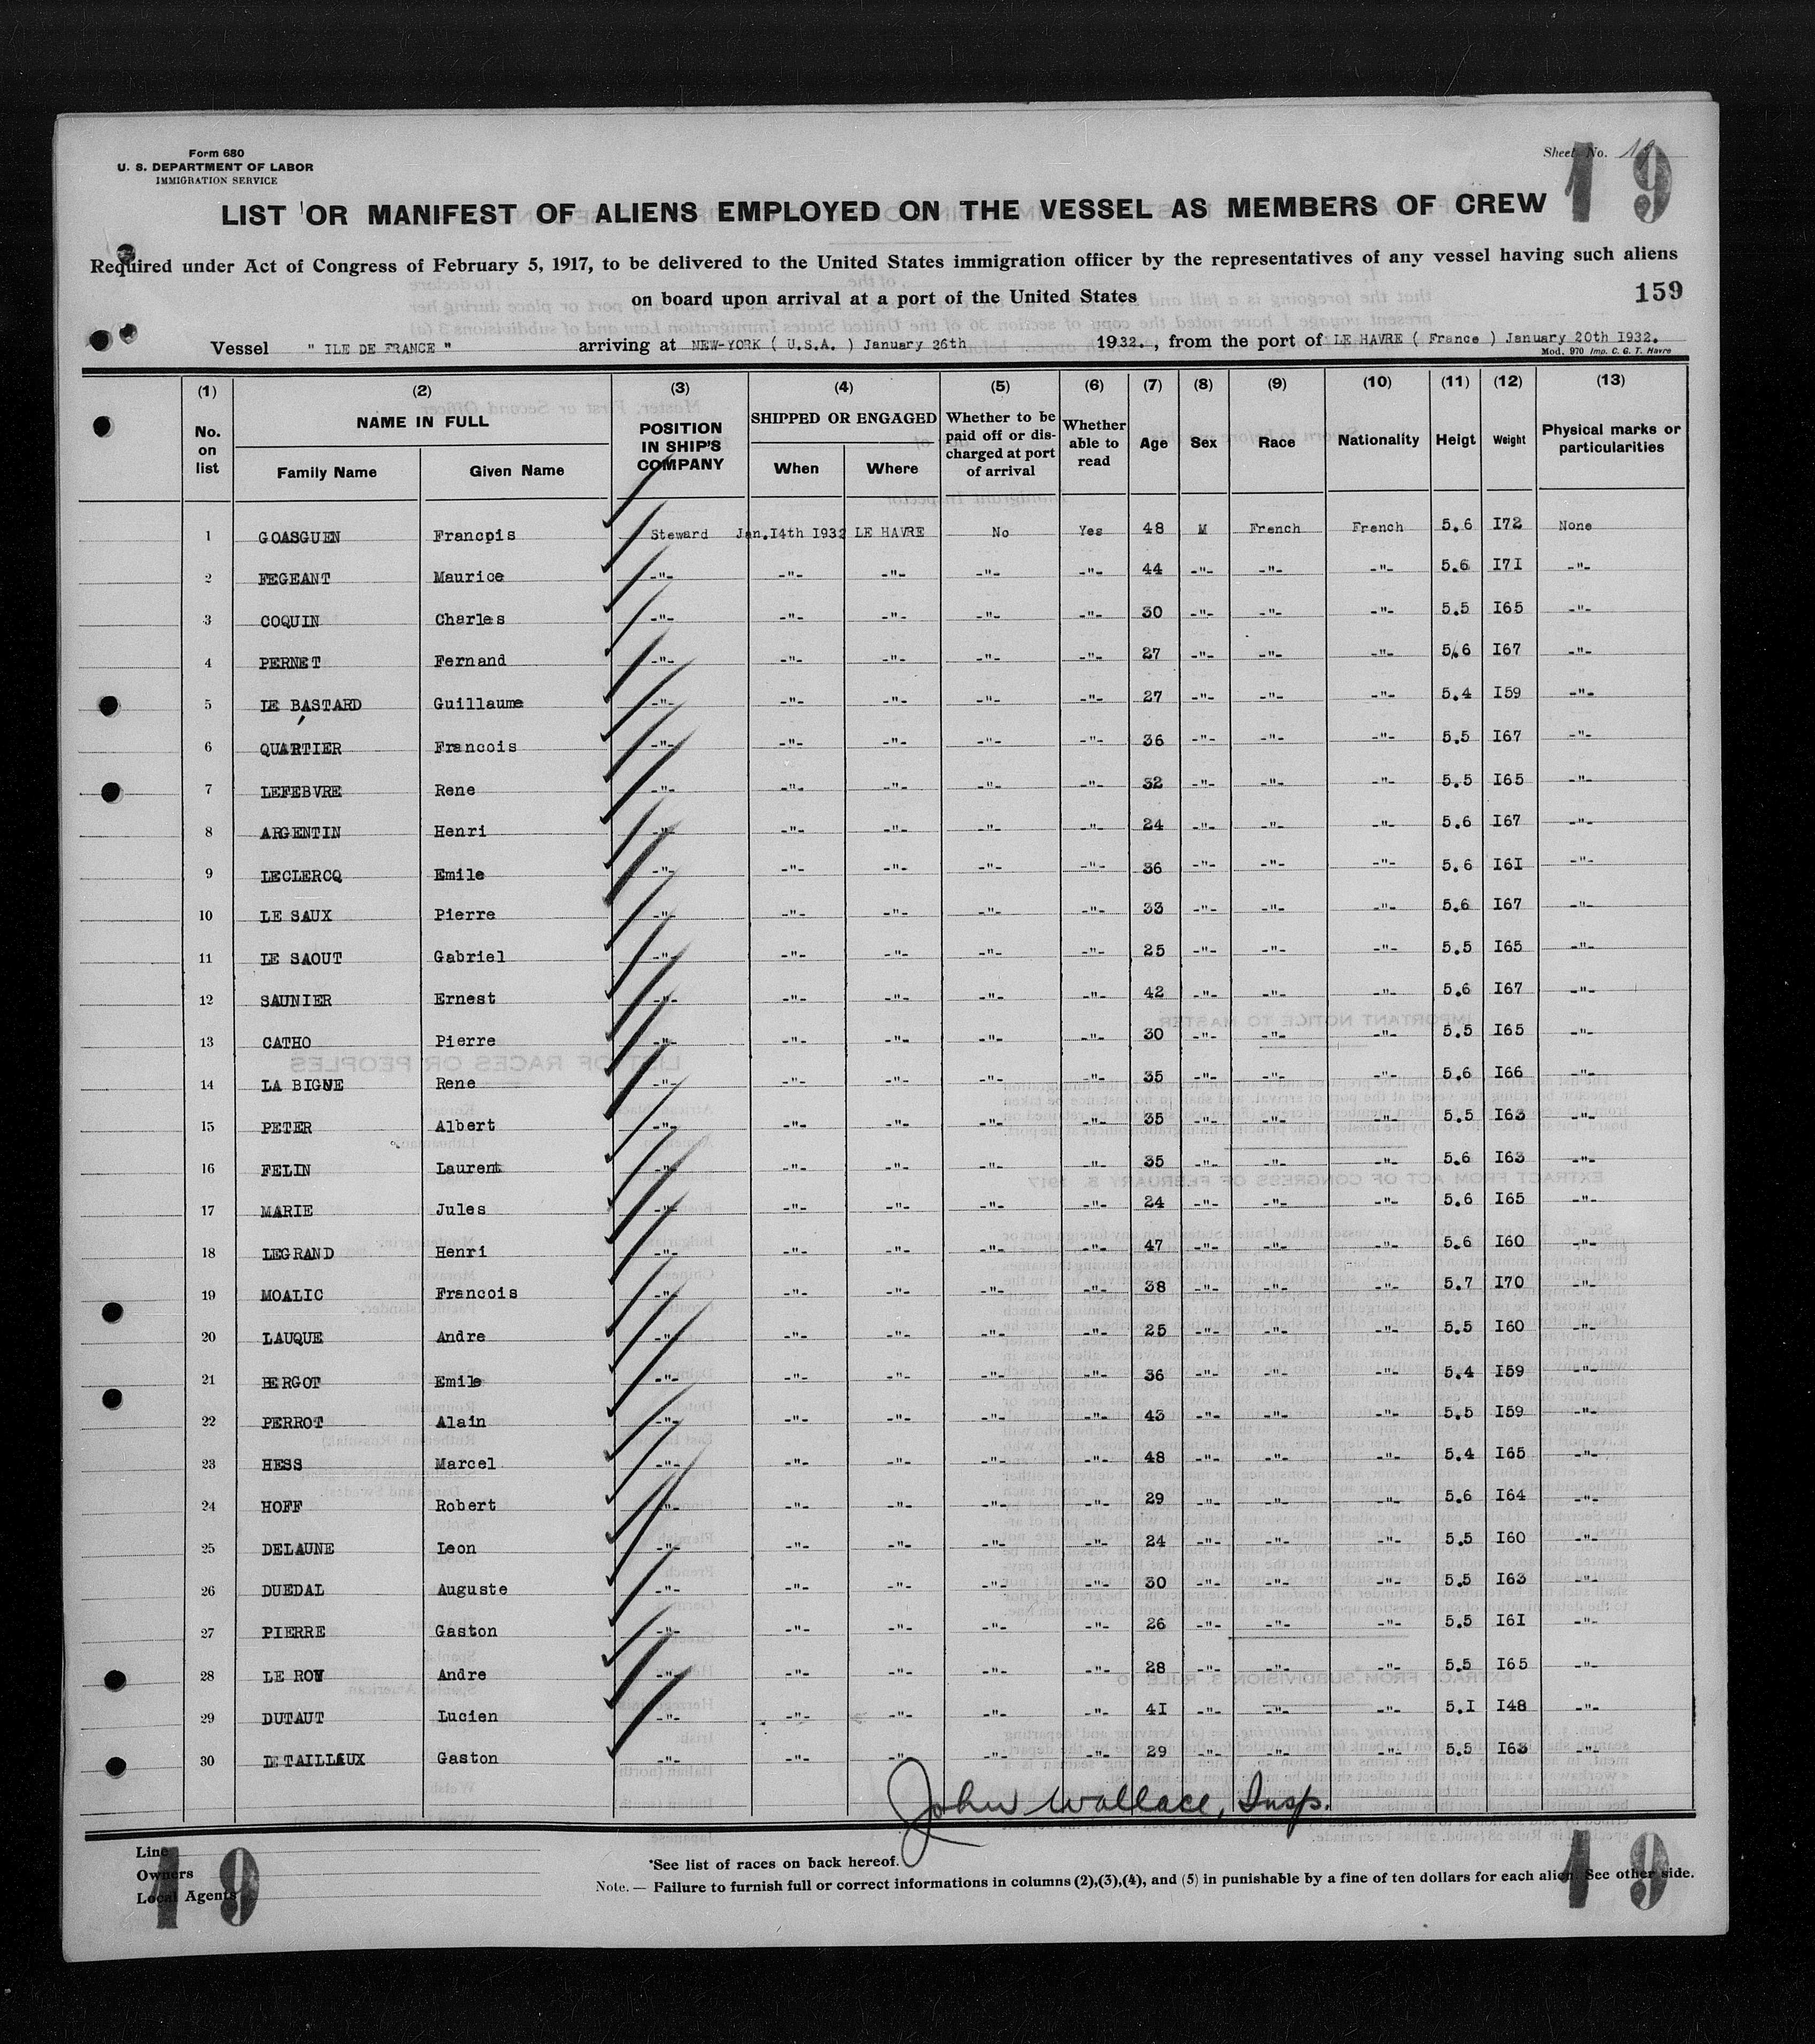 Form 680
U. S. DEPARTMENT OF LABOR
IMMIGRATION SERVICE
Sheet No. 19
19
LIST OR MANIFEST OF ALIENS EMPLOYED ON THE VESSEL AS MEMBERS OF CREW
Required under Act of Congress of February 5, 1917, to be delivered to the United States immigration officer by the representatives of any vessel having such aliens
on board upon arrival at a port of the United States
159
Vessel " ILE DE FRANCE " arriving at NEW-YORK ( U.S.A. ) January 26th 1932. , from the port of LE HAVRE ( France ) January 20th 1932.
Mod. 970 Imp. C. G. T. Havre
(1) (2) (3) (4) (5) (6) (7) (8) (9) (10) (11) (12) (13)
No. on list NAME IN FULL Family Name Given Name POSITION IN SHIP'S COMPANY SHIPPED OR ENGAGED When Where Whether to be paid off or discharged at port of arrival Whether able to read Age Sex Race Nationality Heigt Weight Physical marks or particularities
1 GOASGUEN Francpis Steward Jan.14th 1932 LE HAVRE No Yes 48 M French French 5.6 I72 None
2 FEGEANT Maurice -"- -"- -"- -"- -"- 44 -"- -"- -"- 5.6 I7I -"-
3 COQUIN Charles -"- -"- -"- -"- -"- 30 -"- -"- -"- 5.5 I65 -"-
4 PERNET Fernand -"- -"- -"- -"- -"- 27 -"- -"- -"- 5.6 I67 -"-
5 LE BASTARD Guillaume -"- -"- -"- -"- -"- 27 -"- -"- -"- 5.4 I59 -"-
6 QUARTIER Francois -"- -"- -"- -"- -"- 36 -"- -"- -"- 5.5 I67 -"-
7 LEFEBVRE Rene -"- -"- -"- -"- -"- 32 -"- -"- -"- 5.5 I65 -"-
8 ARGENTIN Henri -"- -"- -"- -"- -"- 24 -"- -"- -"- 5.6 I67 -"-
9 LECLERCQ Emile -"- -"- -"- -"- -"- 36 -"- -"- -"- 5.6 I6I -"-
10 LE SAUX Pierre -"- -"- -"- -"- -"- 33 -"- -"- -"- 5.6 I67 -"-
11 LE SAOUT Gabriel -"- -"- -"- -"- -"- 25 -"- -"- -"- 5.5 I65 -"-
12 SAUNIER Ernest -"- -"- -"- -"- -"- 42 -"- -"- -"- 5.6 I67 -"-
13 CATHO Pierre -"- -"- -"- -"- -"- 30 -"- -"- -"- 5.5 I65 -"-
14 LA BIGNE Rene -"- -"- -"- -"- -"- 35 -"- -"- -"- 5.6 I66 -"-
15 PETER Albert -"- -"- -"- -"- -"- 35 -"- -"- -"- 5.5 I63 -"-
16 FELIN Laurent -"- -"- -"- -"- -"- 35 -"- -"- -"- 5.6 I63 -"-
17 MARIE Jules -"- -"- -"- -"- -"- 24 -"- -"- -"- 5.6 I65 -"-
18 LEGRAND Henri -"- -"- -"- -"- -"- 47 -"- -"- -"- 5.6 I60 -"-
19 MOALIC Francois -"- -"- -"- -"- -"- 38 -"- -"- -"- 5.7 I70 -"-
20 LAUQUE Andre -"- -"- -"- -"- -"- 25 -"- -"- -"- 5.5 I60 -"-
21 BERGOT Emile -"- -"- -"- -"- -"- 36 -"- -"- -"- 5.4 I59 -"-
22 PERROT Alain -"- -"- -"- -"- -"- 43 -"- -"- -"- 5.5 I59 -"-
23 HESS Marcel -"- -"- -"- -"- -"- 48 -"- -"- -"- 5.4 I65 -"-
24 HOFF Robert -"- -"- -"- -"- -"- 29 -"- -"- -"- 5.6 I64 -"-
25 DELAUNE Leon -"- -"- -"- -"- -"- 24 -"- -"- -"- 5.5 I60 -"-
26 DUEDAL Auguste -"- -"- -"- -"- -"- 30 -"- -"- -"- 5.5 I63 -"-
27 PIERRE Gaston -"- -"- -"- -"- -"- 26 -"- -"- -"- 5.5 I6I -"-
28 LE ROY Andre -"- -"- -"- -"- -"- 28 -"- -"- -"- 5.5 I65 -"-
29 DUTAUT Lucien -"- -"- -"- -"- -"- 4I -"- -"- -"- 5.I I48 -"-
30 LETAILLEUX Gaston -"- -"- -"- -"- -"- 29 -"- -"- -"- 5.5 I63 -"-
John Wallace, Insp.
Line
Owners
Local Agents
19
*See list of races on back hereof.
Note. — Failure to furnish full or correct informations in columns (2),(3),(4), and (5) in punishable by a fine of ten dollars for each alien. See other side.
19